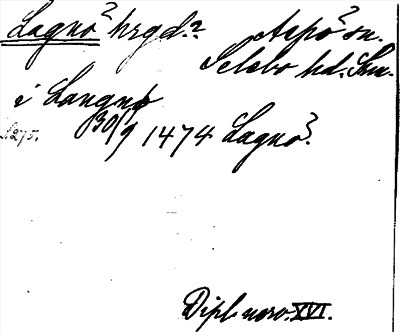 Lagnö hrgd.? Aspö sn.
Selebo hd. Söm.
i Langnø
S. 275. 30/9 1474 Lagnö.
Dipl. norv. XVI.